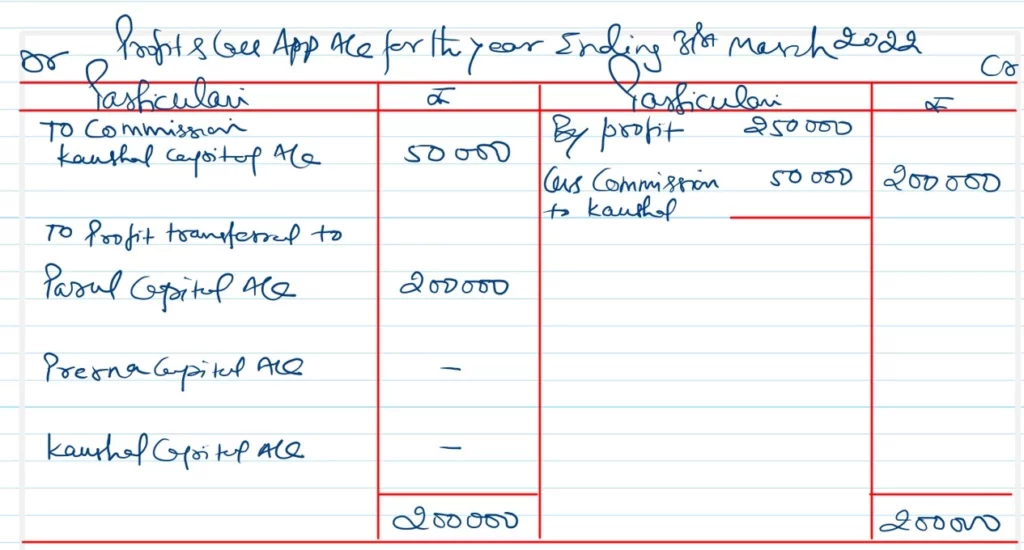 Profit & Loss App A/c for the year Ending 31st March 2022
Dr Cr
Particulars ₹ Particulars ₹
To Commission By profit 250000
Kaushal Capital A/c 50000
Less Commission 50000 200000
to Kaushal
To Profit transferred to
Parul Capital A/c 200000
Prerna Capital A/c –
Kaushal Capital A/c –
200000 200000